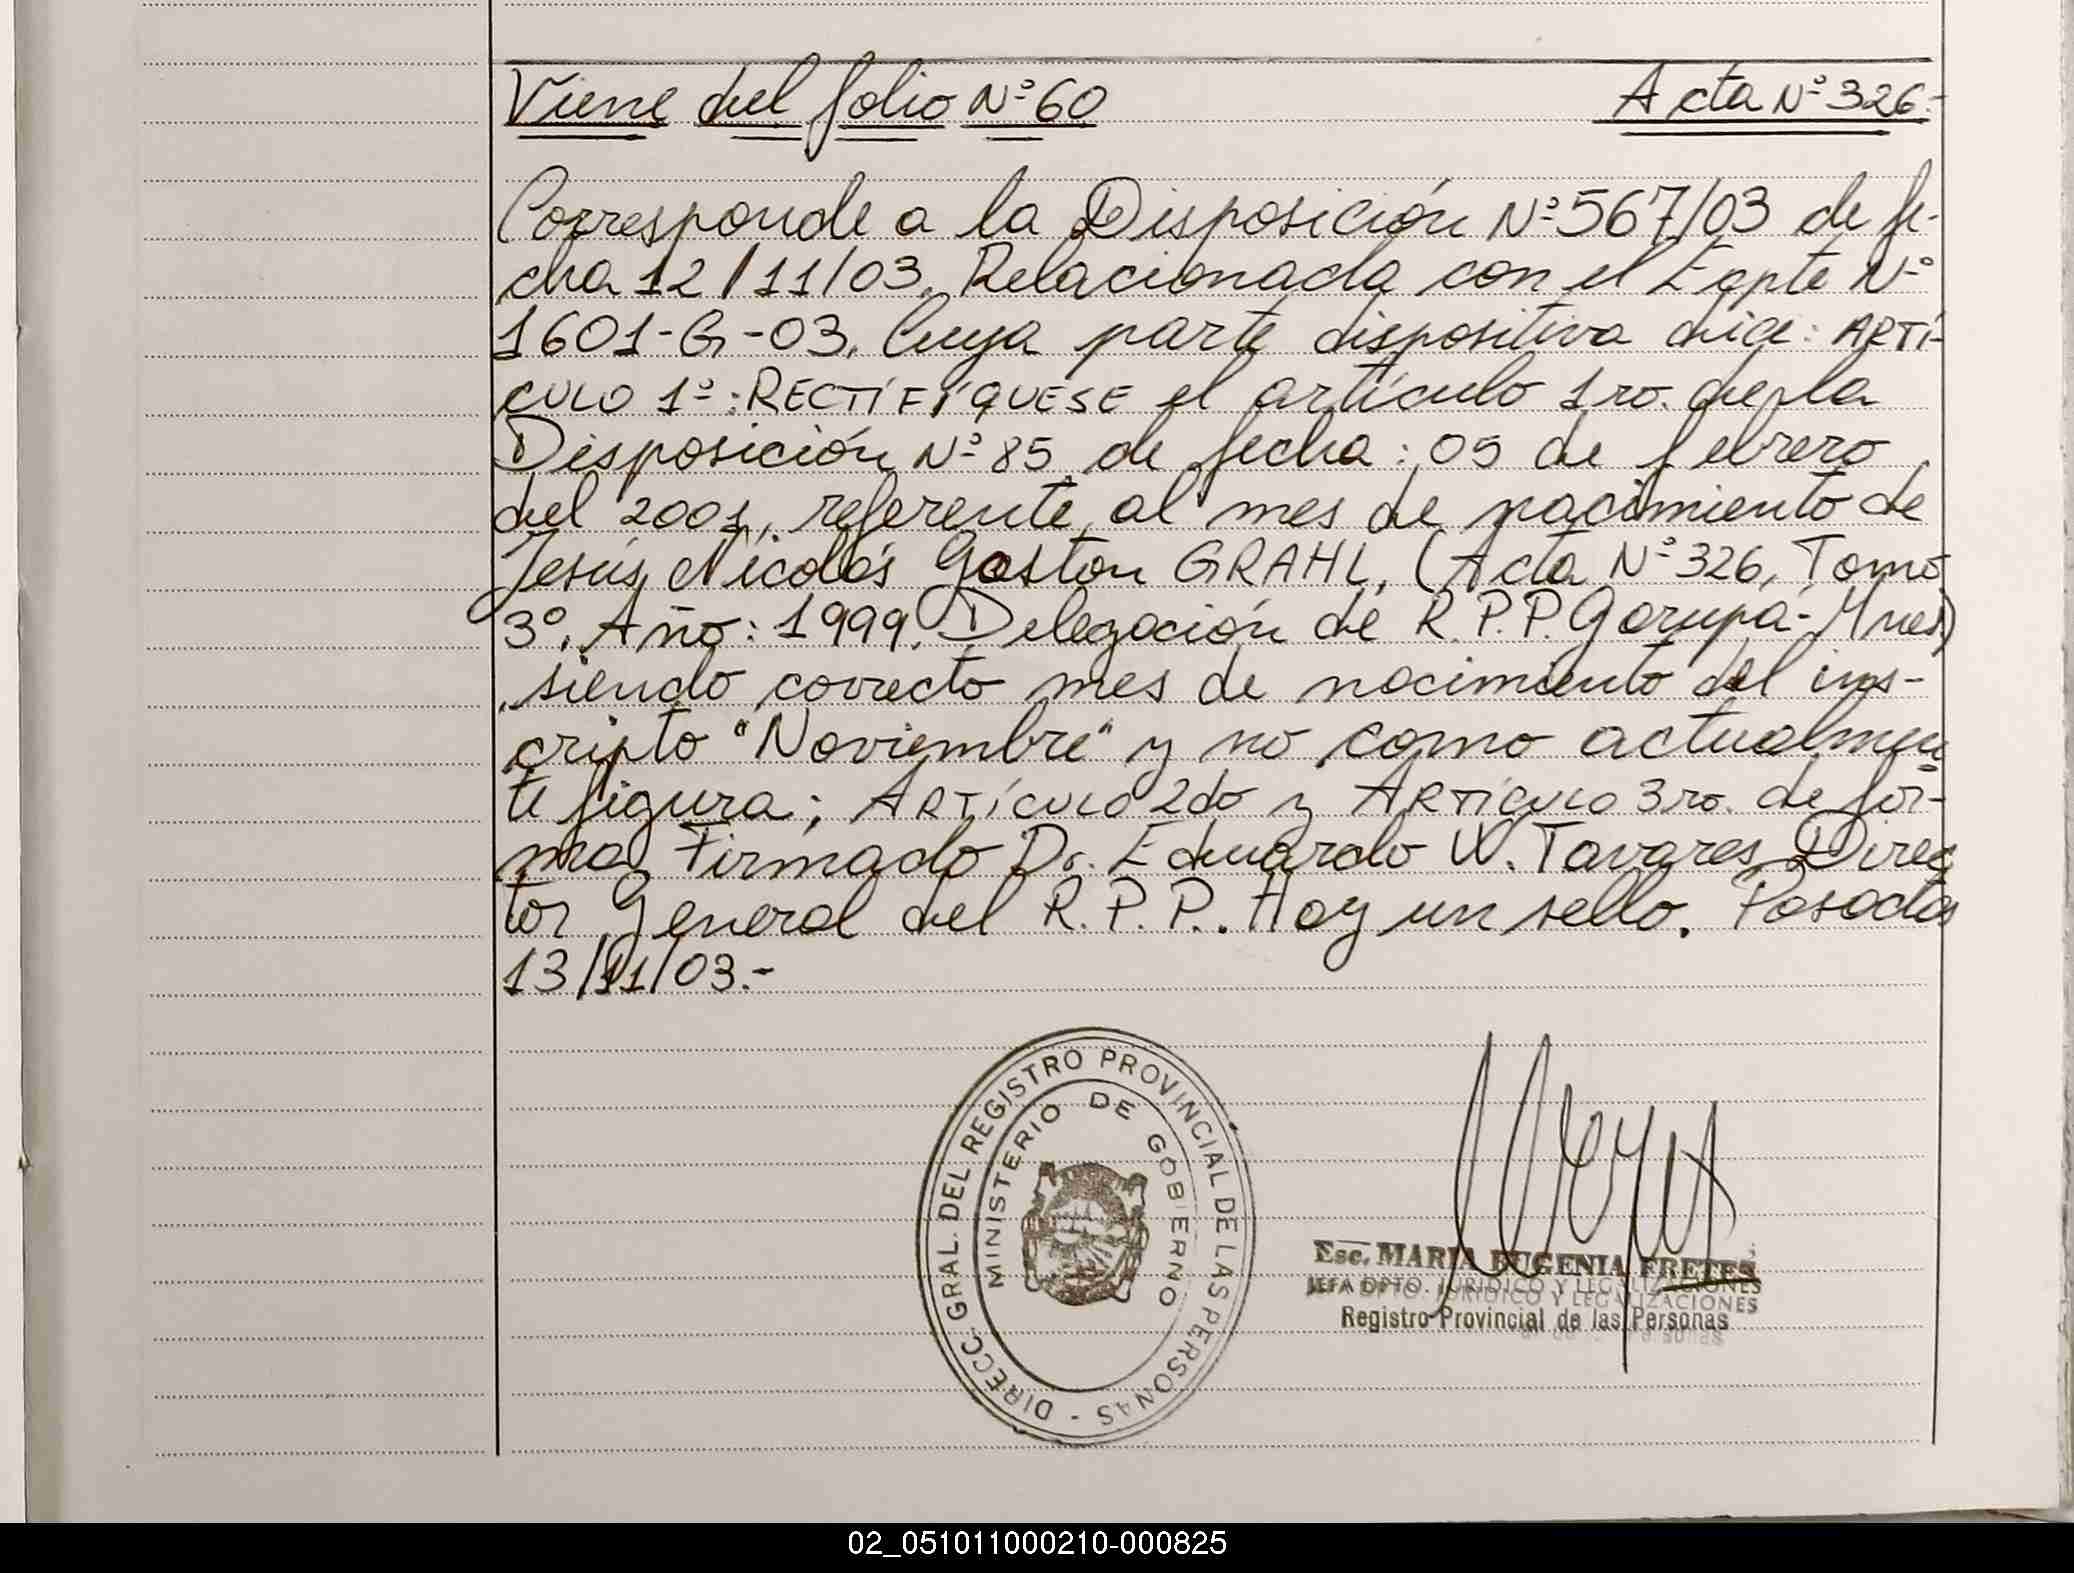 Viene del folio Nº 60 Acta Nº 326.-
Corresponde a la Disposición Nº 567/03 de fe-
cha 12/11/03. Relacionada con el Expte Nº
1601-G-03. Cuya parte dispositiva dice: ARTÍ-
CULO 1º: RECTIFÍQUESE el artículo 1ro. de la
Disposición Nº 85, de fecha: 05 de febrero
del 2001, referente al mes de nacimiento de
Jesús Nicolás Gaston GRAHL, (Acta Nº 326, Tomo
3º, Año: 1999. Delegación de R.P.P. Garupá-Mnes)
siendo correcto mes de nacimiento del ins-
cripto "Noviembre" y no como actualmen
te figura; ARTÍCULO 2do y ARTÍCULO 3ro. de for-
ma, Firmado Dr. Eduardo W. Tavares, Direc
tor General del R.P.P.. Hay un sello. Posadas
13/11/03.-
DIRECC. GRAL. DEL REGISTRO PROVINCIAL DE LAS PERSONAS -
MINISTERIO DE GOBIERNO
Esc. MARIA EUGENIA FRETES
JEFA DPTO. JURIDICO Y LEGALIZACIONES
Registro Provincial de las Personas
02_051011000210-000825